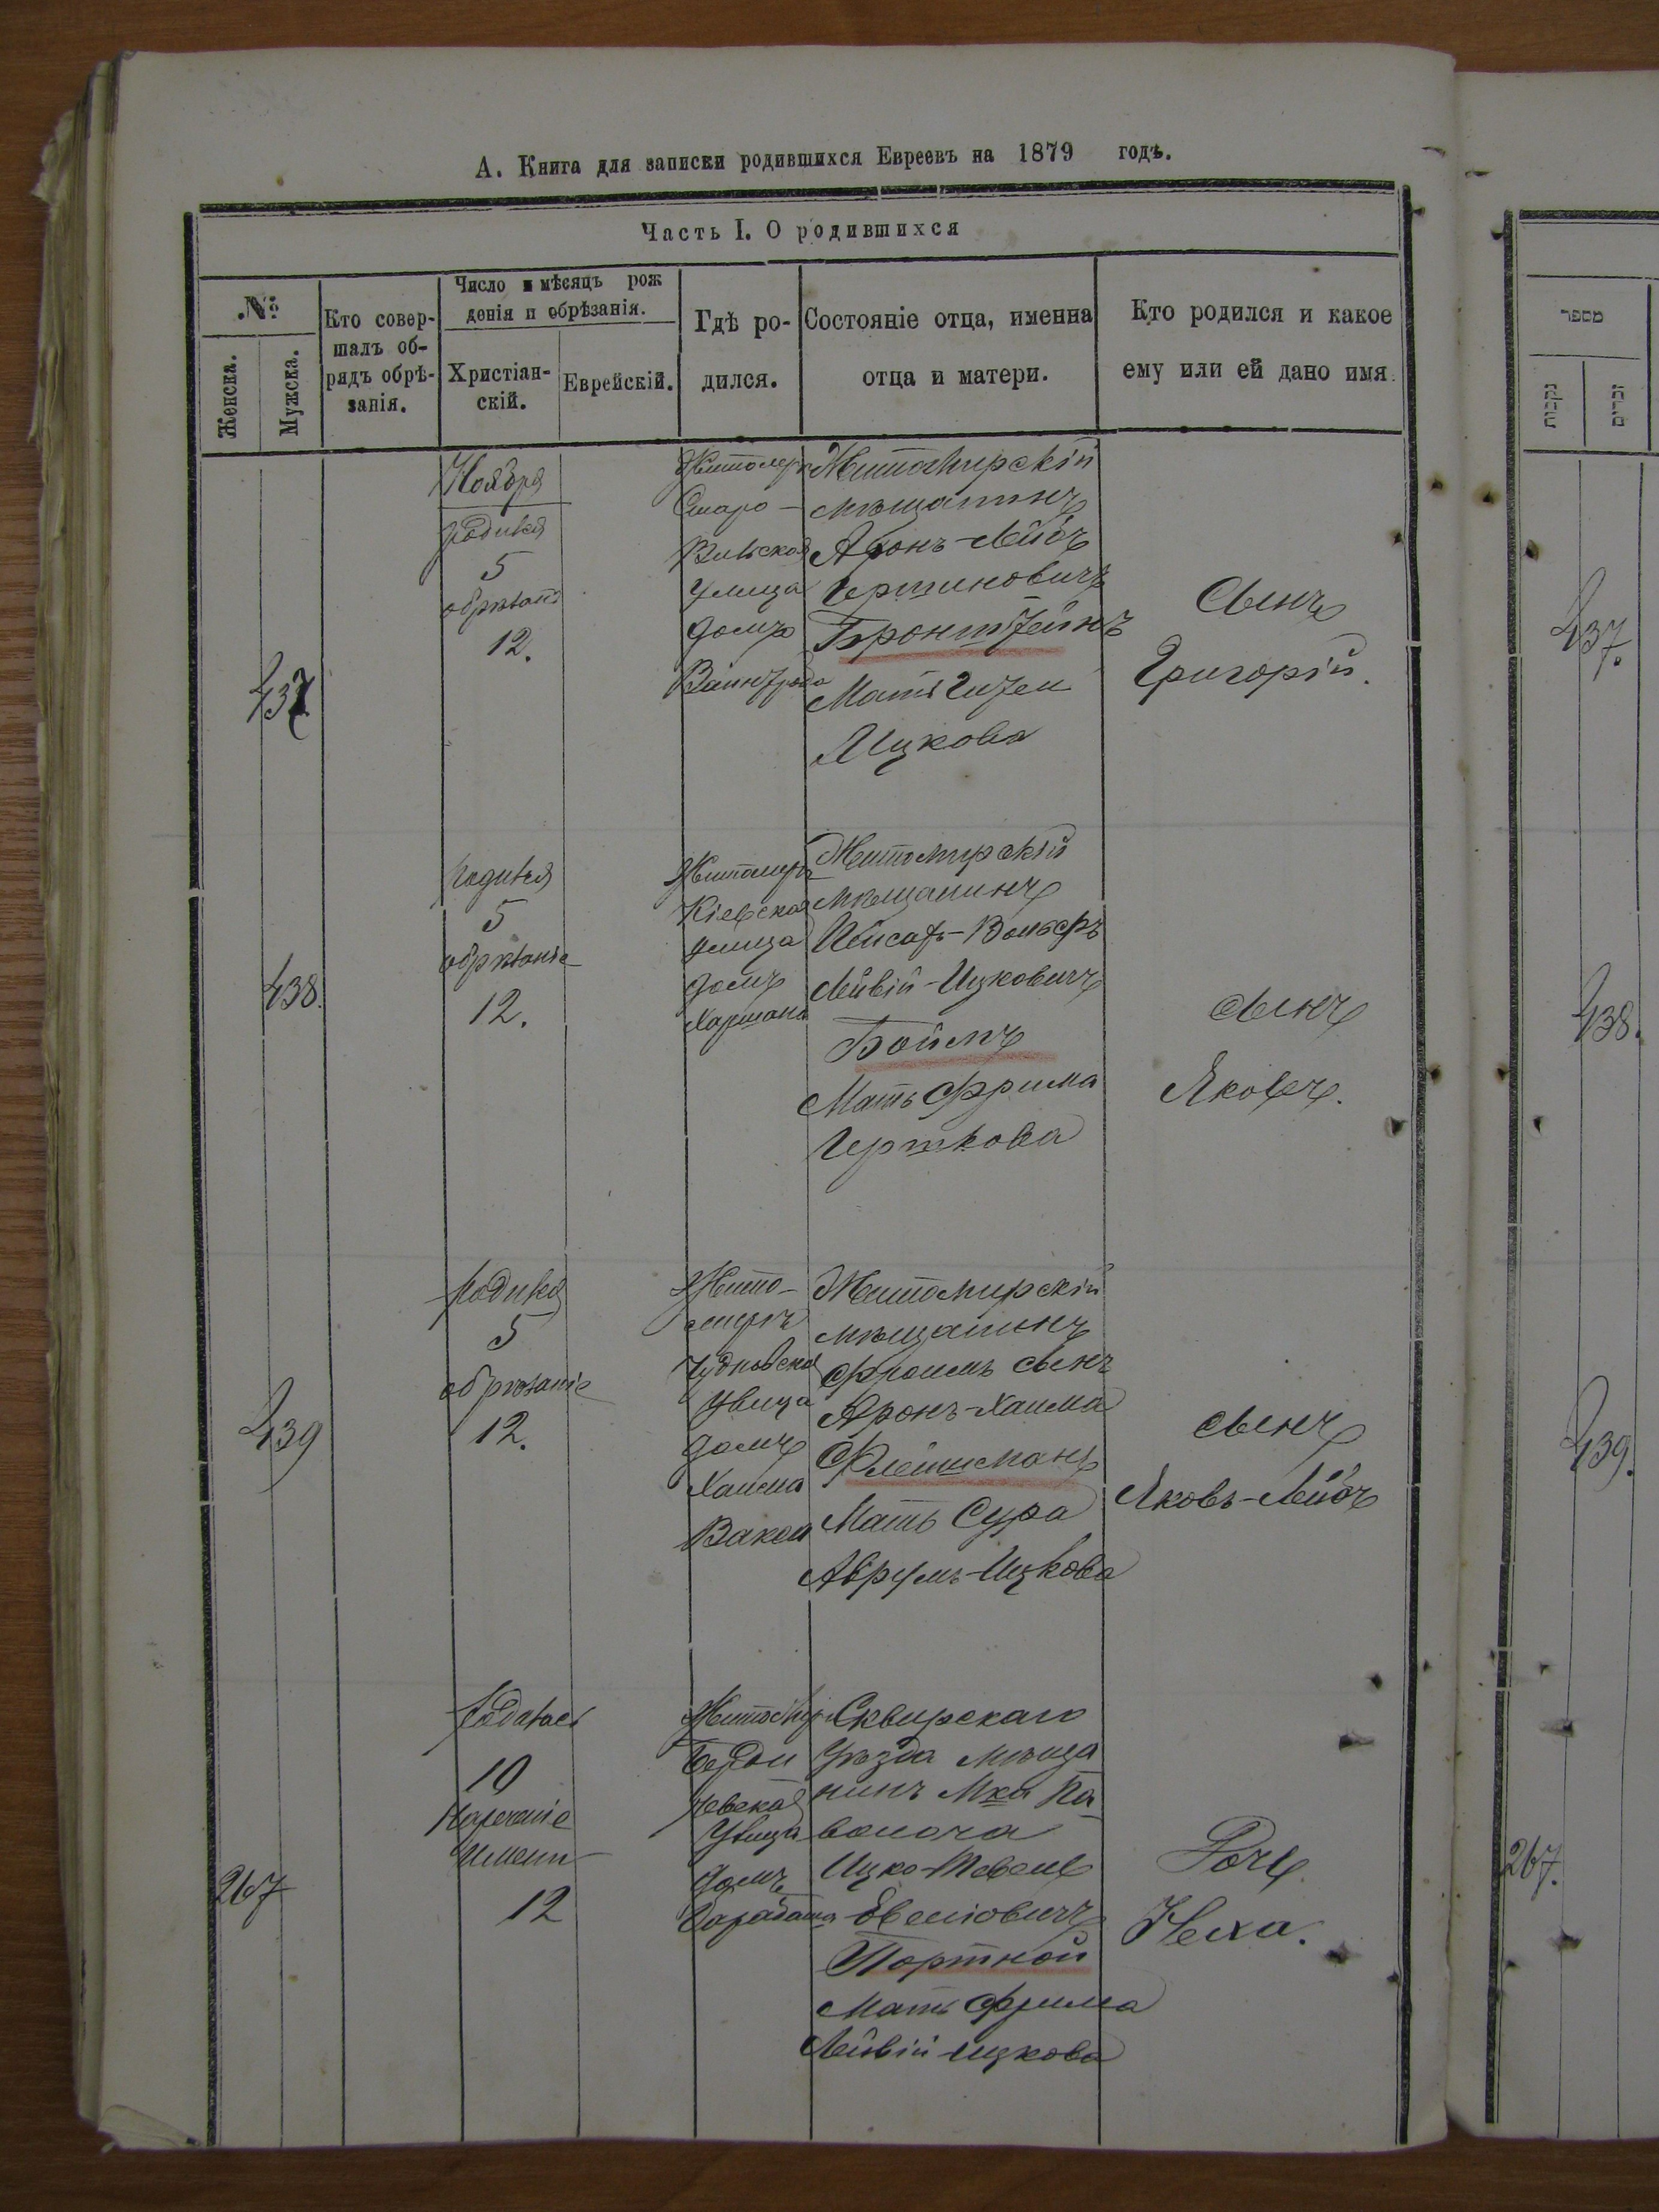 А. Книга для записки родившихся Евреевъ на 1879 годъ.
Часть I. О родившихся
№
Женска.
Мужска.
Кто совер-
шалъ об-
рядъ обрѣ-
занія.
Число и мѣсяцъ рож
денія и обрѣзанія.
Христіан-
скій.
Еврейскій.
Гдѣ ро-
дился.
Состояніе отца, именна
отца и матери.
Кто родился и какое
ему или ей дано имя
437
Ноября
родился
5
обрѣзаніе
12.
Житомеръ
Старо-
Вильская
улица
домъ
Житомирскій
мѣщанинъ
Аронъ-Лейбъ
Гершковичъ
Бронштейнъ
Мать
Ицкова
Сынъ
Григорій.
438.
Родился
5
обрѣзаніе
12.
Житомеръ
Кіевская
улица
домъ
Житомирскій
мѣщанинъ
Пейсахъ-Вольфъ
Лейвій-Ицковичъ
Боймъ
Мать Фрима
Гершкова
Сынъ
Яковъ.
439
Родился
5
обрѣзаніе
12.
Жито-
миръ
Чудновская
Улица
домъ
Хаима
Житомирскій
мѣщанинъ
Фроимъ сынъ
Аронъ-Хаима
Флейшманъ
Мать Сура
Аврумъ-Ицкова
Сынъ
Яковъ-Лейбъ
267
Родилась
10
Нареченіе
имени
12
Житомиръ
Берди
чевская
Улица
домъ
Сквирскаго
Уѣзда мѣща
нинъ Мка Па
волочи
Ицко-
Портной
Мать Фрима
Лейвій-Ицкова
Дочь
Неха.
מספר
נקבות
זכרים
437.
438.
439.
267.